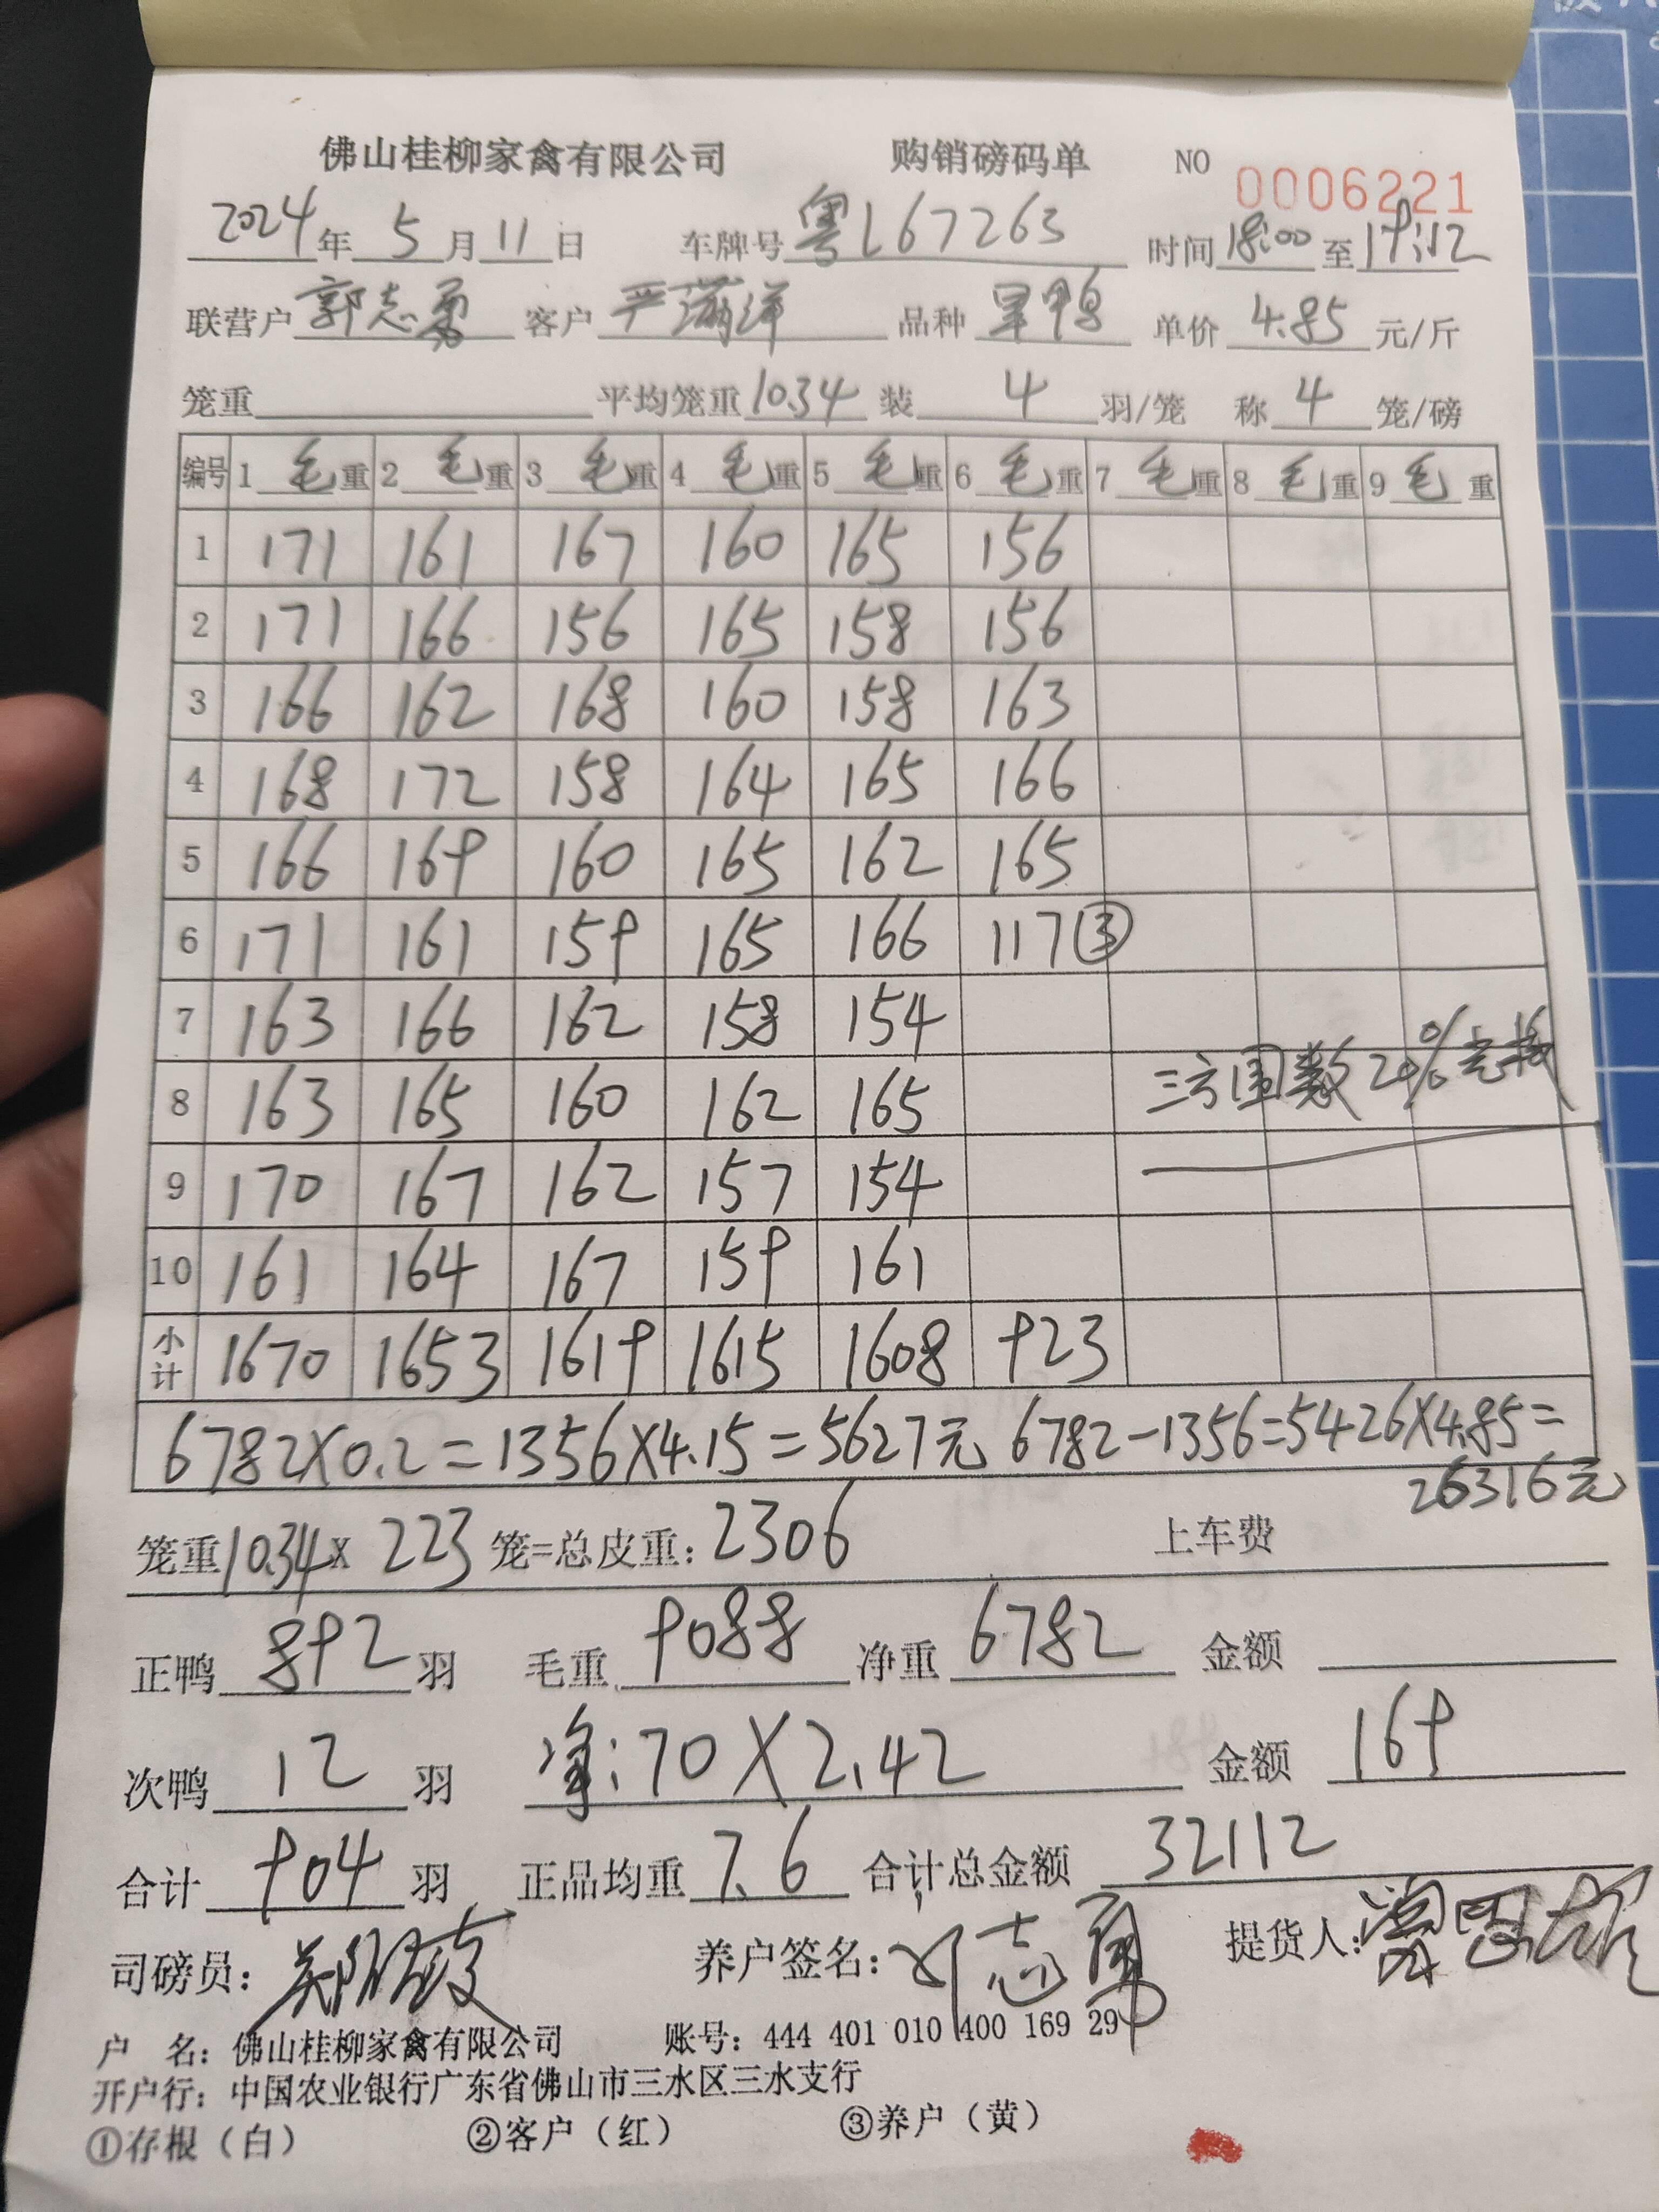 佛山桂柳家禽有限公司 购销磅码单 NO 0006221
2024年 5月 11日 车牌号 粤L67263 时间 18:00 至 19:12
联营户 郭志勇 客户 严满洋 品种 单价 4.85 元/斤
笼重 平均笼重 10.34 装 4 羽/笼 称 4 笼/磅
编号 1 毛重 2 毛重 3 毛重 4 毛重 5 毛重 6 毛重 7 毛重 8 毛重 9 毛重
1 171 161 167 160 165 156
2 171 166 156 165 158 156
3 166 162 168 160 158 163
4 168 172 158 164 165 166
5 166 169 160 165 162 165
6 171 161 159 165 166 117③
7 163 166 162 158 154
8 163 165 160 162 165 数20%
9 170 167 162 157 154
10 161 164 167 159 161
小计 1670 1653 1619 1615 1608 923
6782×0.2=1356×4.15=5627元 6782-1356=5426×4.85=
26316元
笼重10.34× 223 笼=总皮重: 2306 上车费
正鸭 892 羽 毛重 9088 净重 6782 金额
次鸭 12 羽 净:70×2.42 金额 169
合计 904 羽 正品均重 7.6 合计总金额 32112
司磅员: 养户签名: 提货人:
户 名: 佛山桂柳家禽有限公司 账号: 444 401 010 400 169 29
开户行: 中国农业银行广东省佛山市三水区三水支行
①存根(白) ②客户(红) ③养户(黄)